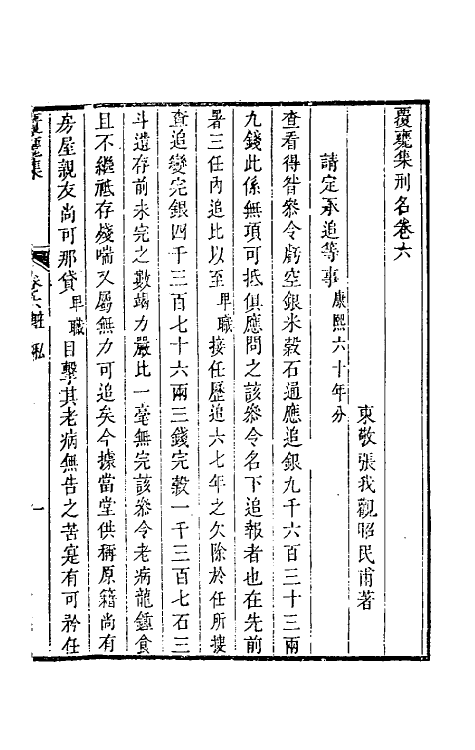 覆甕集刑名卷六
東敬張我觀昭民甫著
請定承追等事 康熙六十年分
查看得昝叅令虧空銀米穀石通應追銀九千六百三十三兩
九錢此係無項可抵俱應問之該叅令名下追報者也在先前
署三任內追比以至卑職接任歷追六七年之欠除於任所搜
查追變完銀四千三百七十六兩三錢完穀一千三百七石三
斗遺存前未完之數竭力嚴比一毫無完該叅令老病龍鍾食
且不繼祗存殘喘又屬無力可追矣今據當堂供稱原籍尚有
房屋親友尚可那貸卑職目擊其老病無告之苦寔有可矜任
覆甕集
卷六
私
一